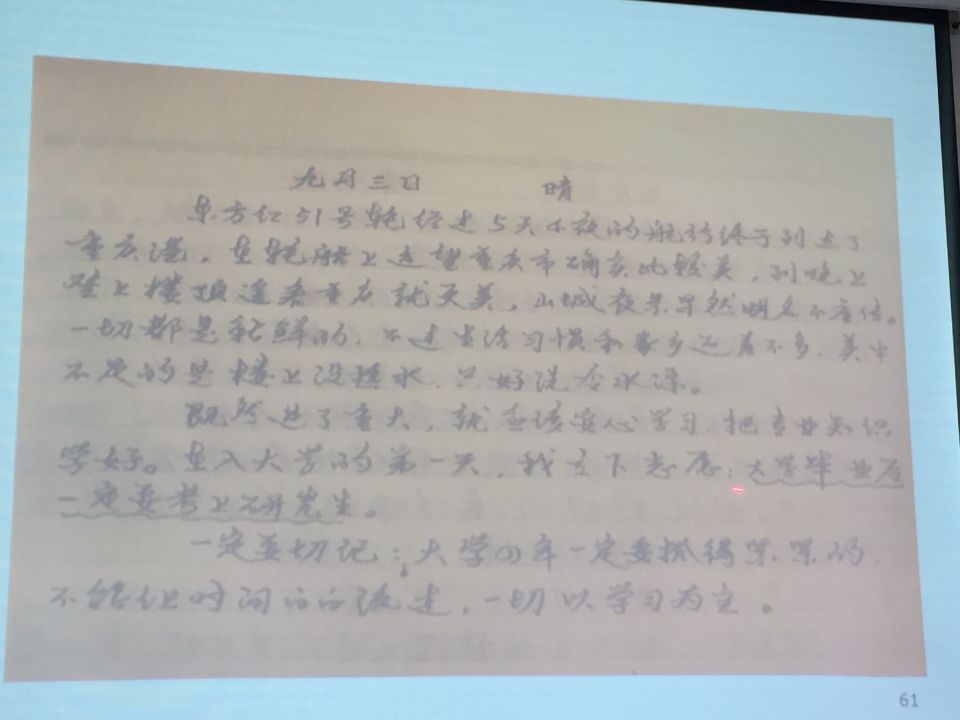 九月三日 晴
东方红51号轮经过5天4夜的航行终于到达了
重庆港。在轮船上远望重庆市确实比较美，到晚上
上楼顶看重庆就更美，山城夜景果然明名不虚传。
一切都是新鲜的，不过生活习惯和家乡差不多，美中
不足的是楼上没热水，只好洗冷水澡。
既然进了重大，就应该安心学习，把专业知识
学好。在入大学的第一天，我立下志愿：大学毕业后
一定要考上研究生。
一定要切记：大学四年一定要抓得紧紧的，
不能但时间白白流过，一切以学习为主。
61